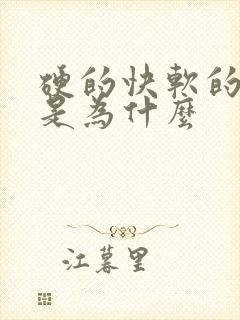 硬的快軟的
是為什麼
江暮里